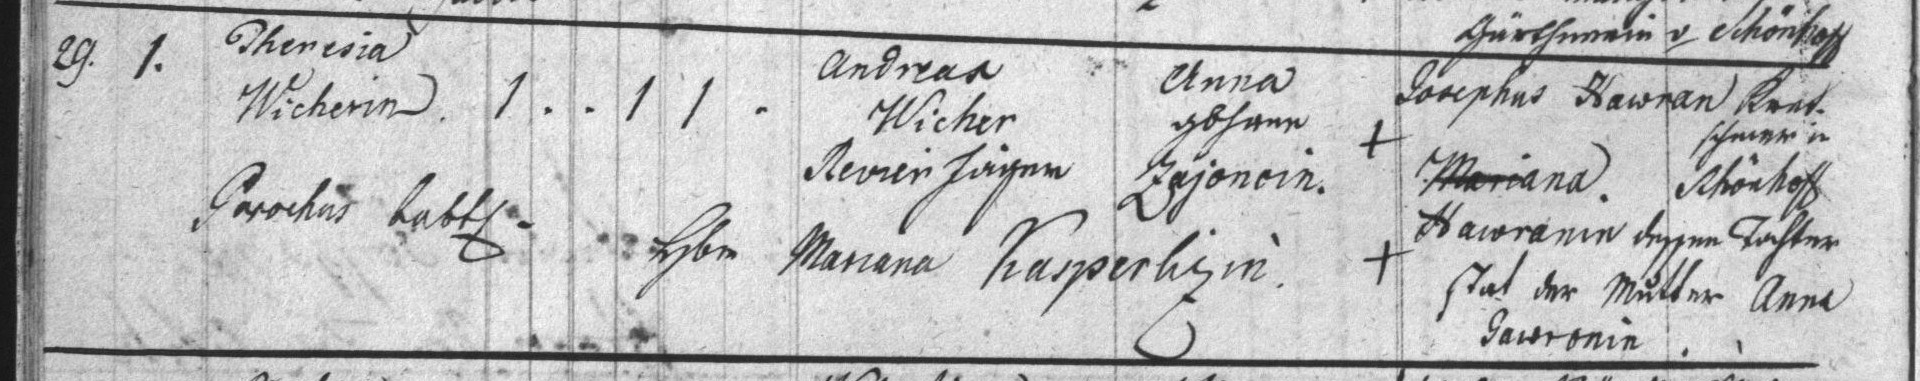 Gärtnerin v Schönhoff
29. 1. Theresia Andreas Anna Josephus Hawran Kret-
Wicherin. 1 . . 1 1 . Wicher gebohrne + schmer in
Revier Jäger Zajoncin. Mariana. Schönhoff
Parochus bapt. Hawranin dessen Tochter
Hebm Mariana Kasperlizin. + stat der Mutter Anna
Gawronin.